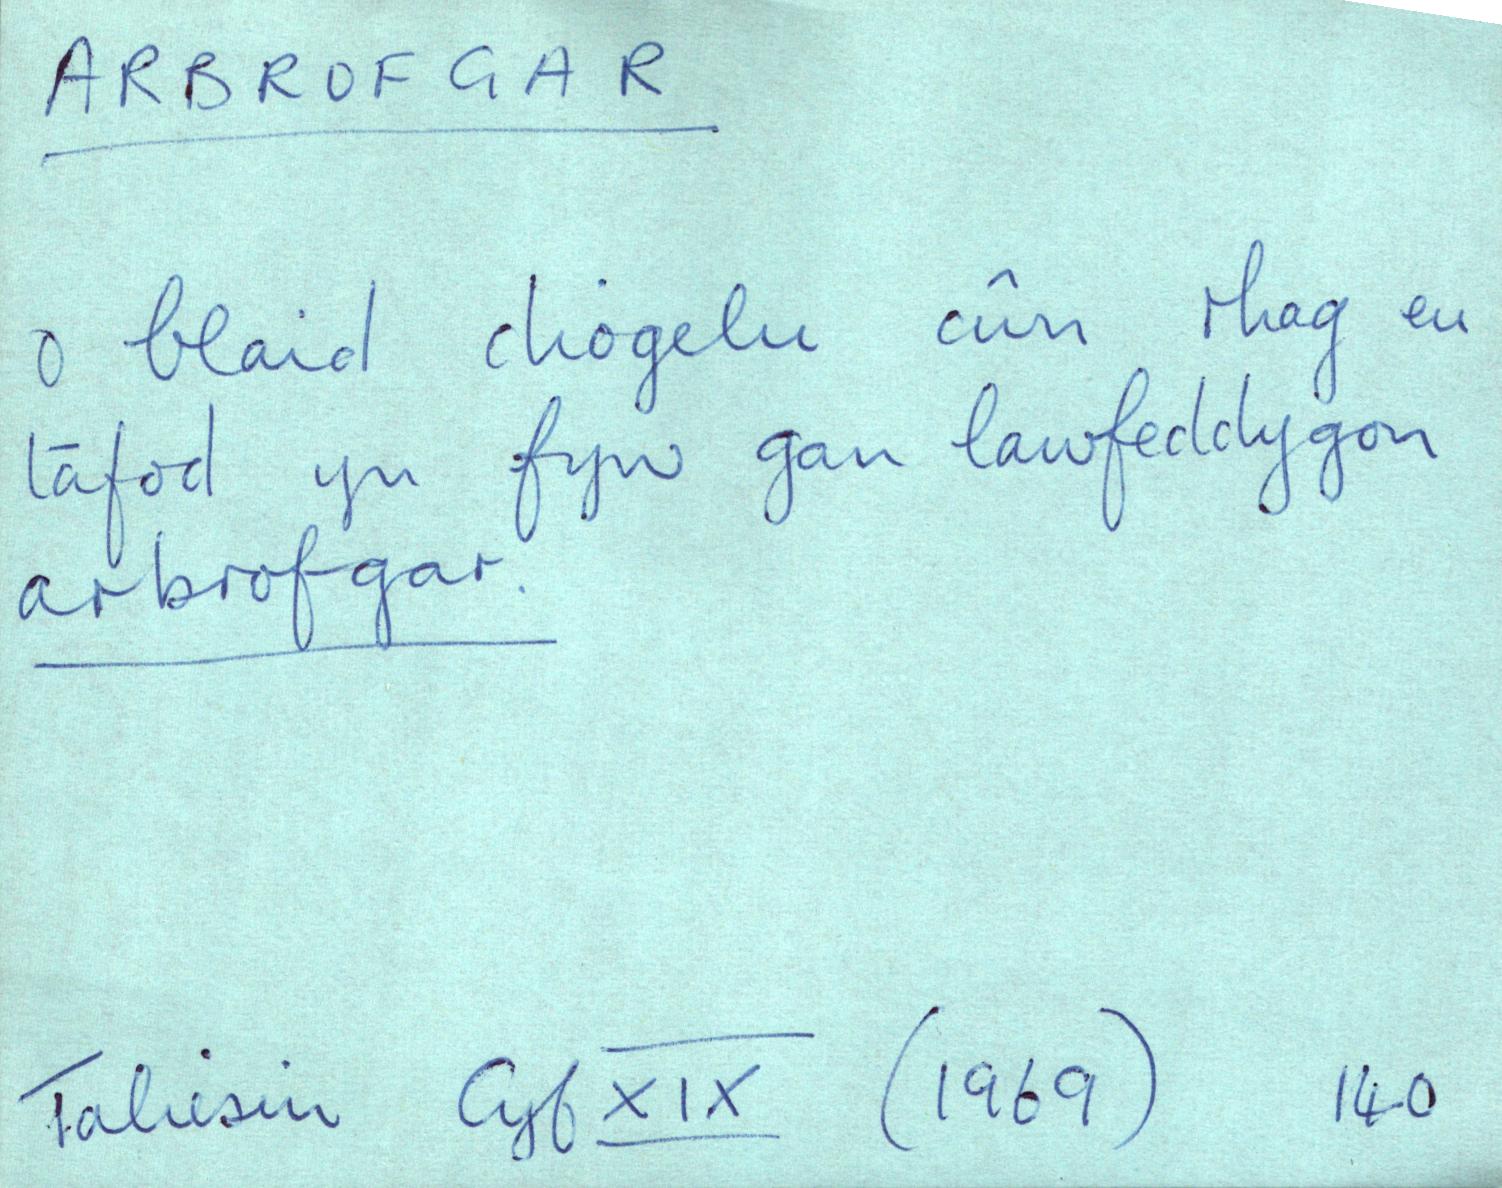 ARBROFGAR
o blaid diogelu cŵn rhag eu
tafod yn fyw gan lawfeddygon
arbrofgar.
Taliesin Cyf XIX (1969) 140